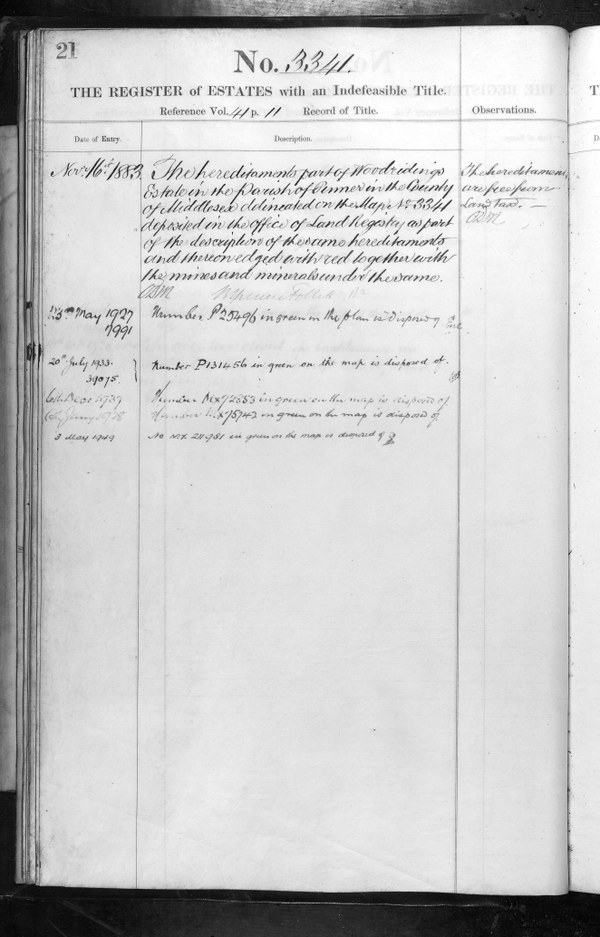 21
No. 3341.
THE REGISTER of ESTATES with an Indefeasible Title.
Reference Vol. 41 p. 11 Record of Title.
Observations.
Date of Entry.
Description.
Nov. 16th 1883
The hereditaments part of Woodridings
Estate in the Parish of Pinner in the County
of Middlesex delineated on the Map No 3341
deposited in the Office of Land Registry as part
of the description of the same hereditaments
and thereon edged with red together with
the mines and minerals under the same.
The hereditaments
are free from
Land Tax.
23rd May 1927
Number P25496 in green on the plan is disposed of
20th July 1933.
39075.
Number P131456 in green on the map is disposed of.
in green on the map is disposed of
in green on the map is disposed of
3 May 1949
No MX 211951 in green on the map is disposed of